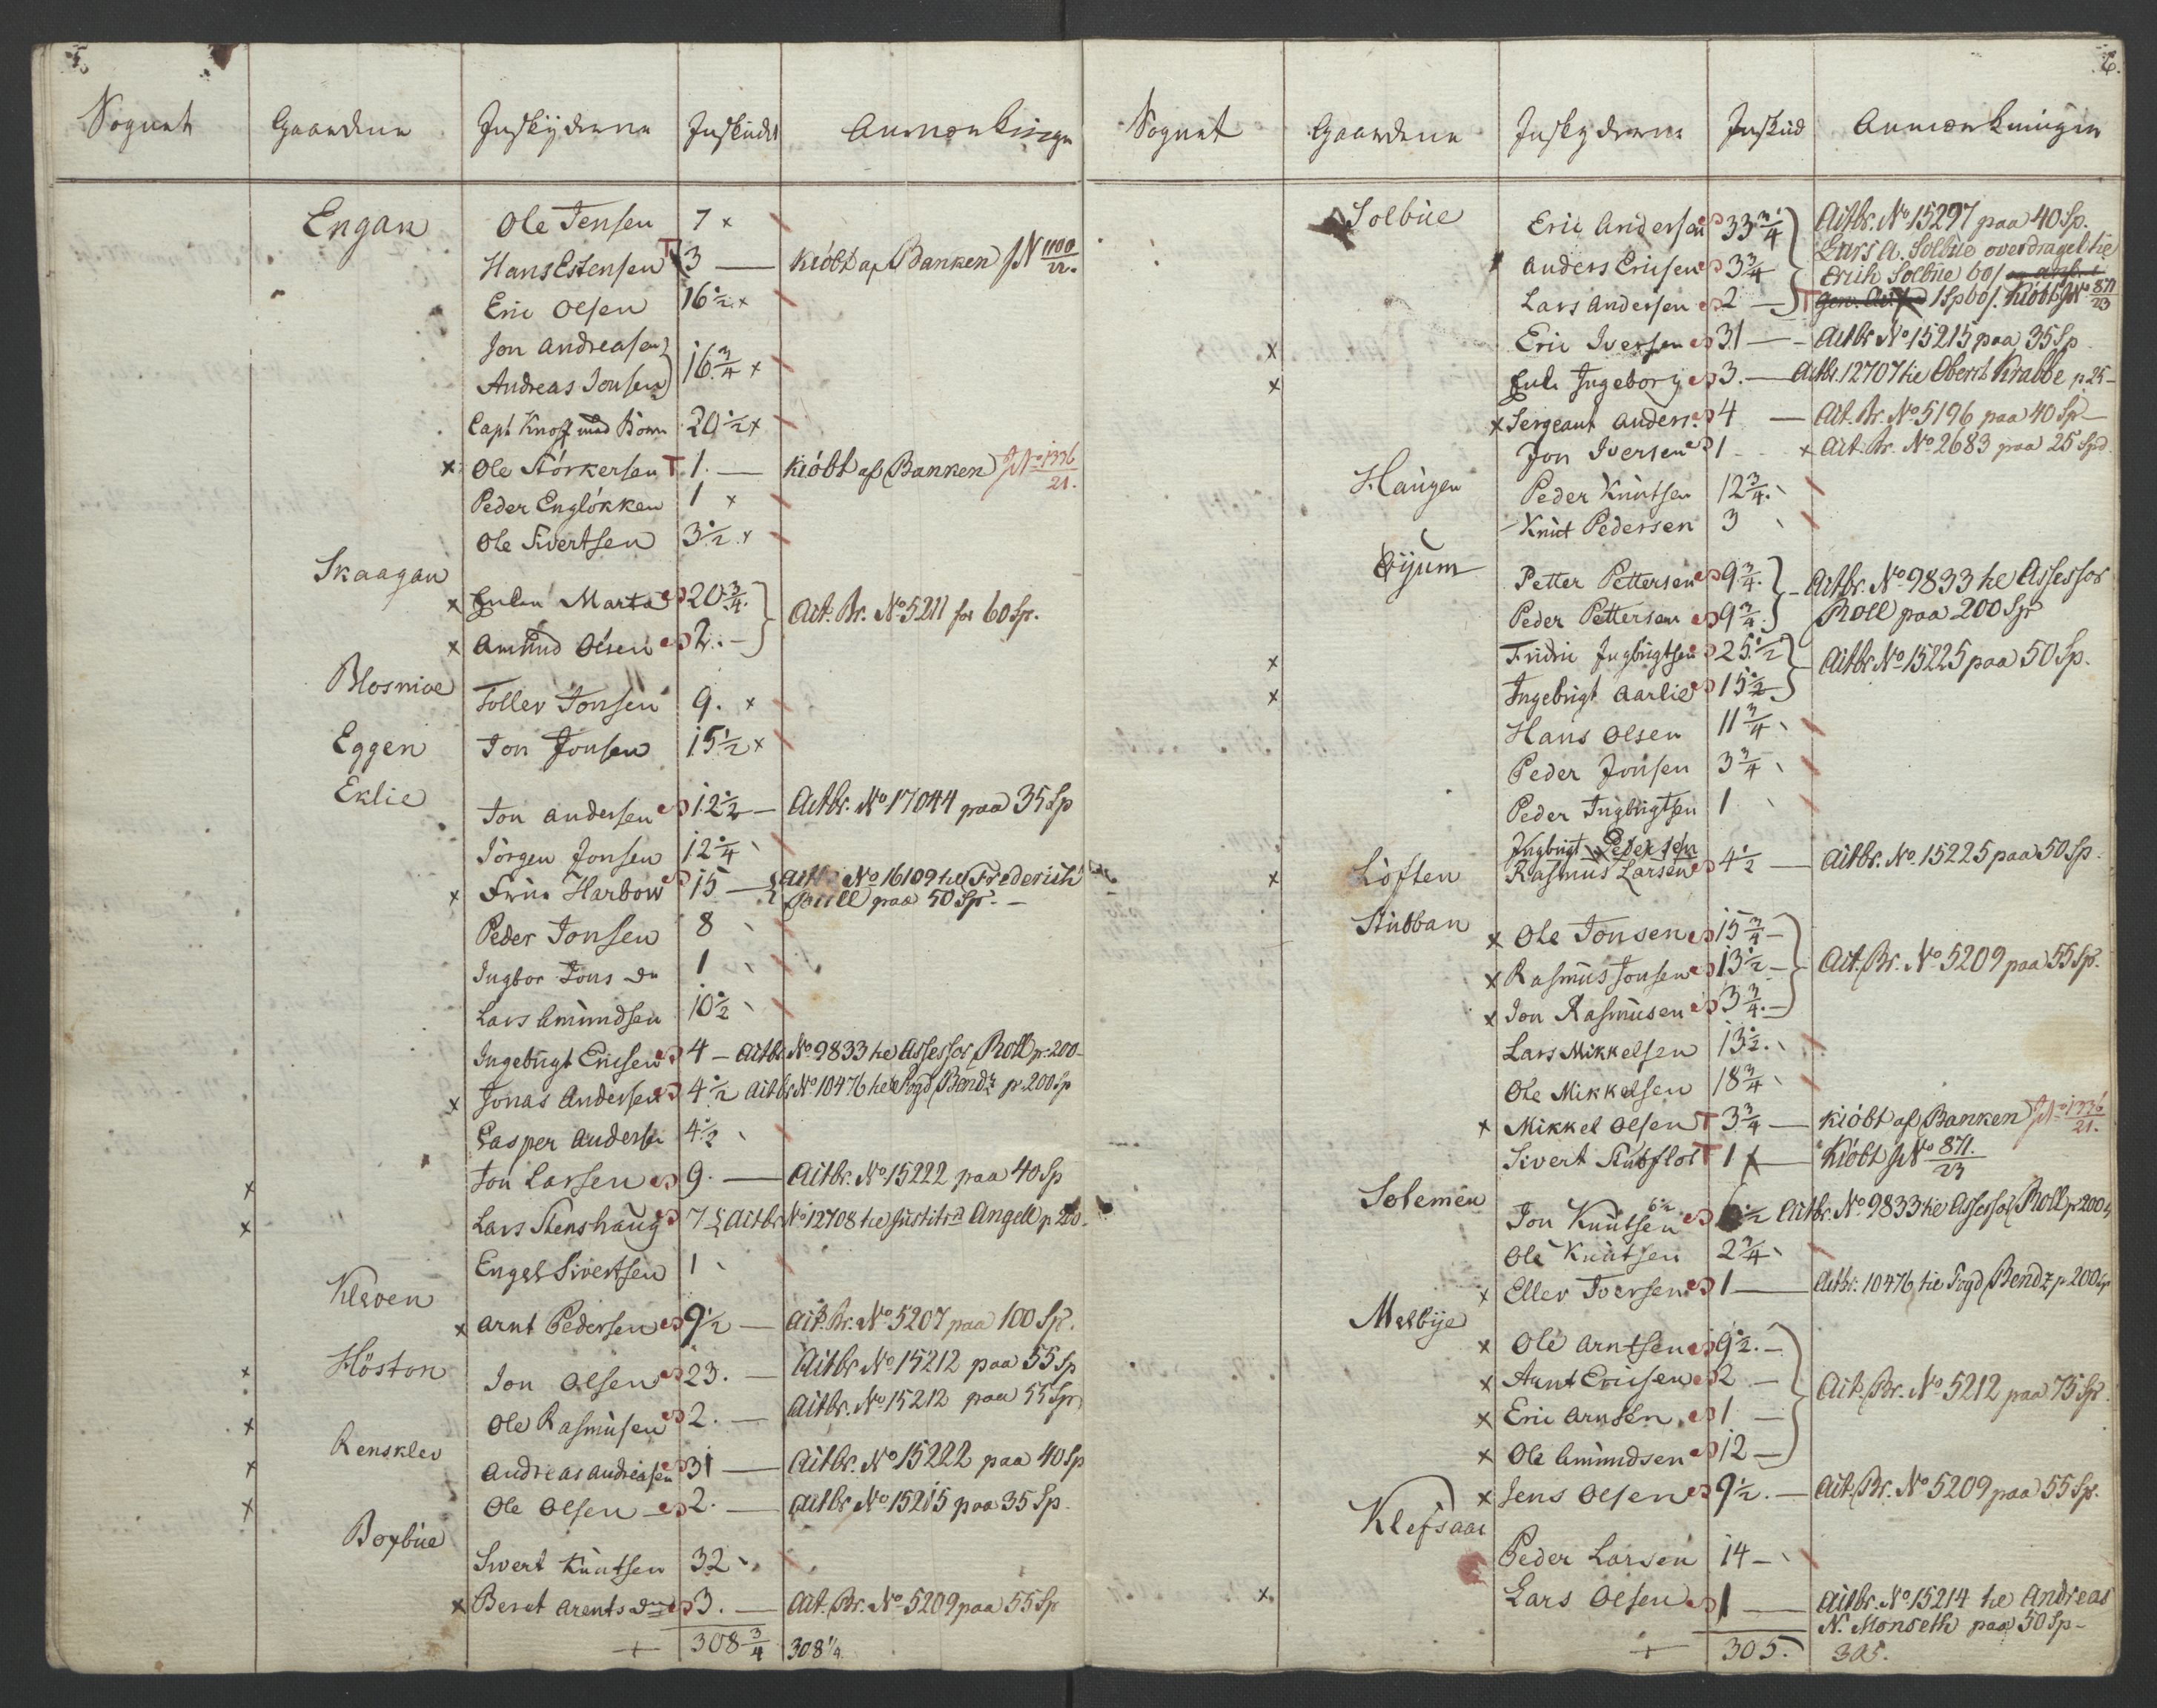 5.
Sognet Gaardene Indskyderne Indskudet Anmærkninge
Engan Ole Jensen 7 x
Hans Estensen T 3 — Kiöbt af Banken J No 1100/22.
Eric Olsen 16 1/2 x
Jon Andreasen
Andreas Jonsen 16 3/4 x
Capt Knoff med Börn 20 1/2 x
x Ole Störkersen T 1. — Kiöbt af Banken J No 1336/21.
Peder Englökken 1 x
Ole Sivertsen 3 1/2 x
Skaagan
x Enken Marta 20 3/4.
x Amund Olsen 2. — Act. Br. No 5211 for 60 Sp.
Blosmoe Toller Jonsen 9. x
Eggen Jon Jonsen 15 1/2 x
Eklie Jon Andersen 12 1/2 — Actbr. No 17044 paa 35 Sp
Jörgen Jonsen 12 1/4
x Frue Harbow 15 — Actbr No 16109 til Frederich
paa 50 Sp. —
Peder Jonsen 8
Ingbor Jons Dr 1
Lars Amundsen 10 1/2
Ingebrigt Ericsen 4 — Actbr No 9833 til Assessor Roll p. 200 —
x Jonas Andersen 4 1/2 Actbr No 10476 til Fogd Bendz p. 200 Sp
Casper Andersen 4 1/2
x Jon Larsen 9. — Actbr. No 15222 paa 40 Sp
x Lars Stenshaug 7 1/2 Actbr No 12708 til Justitsrd Angell p 200.
Engel Sivertsen 1
Kleven
x Arnt Pedersen 9 1/2 — Act. Br. No 5207 paa 100 Sp.
x Höston Jon Olsen 23. — Actbr No 15212 paa 55 Sp
x Ole Rasmusen 2. — Actbr. No 15212 paa 55 Sp
x Rensklev Andreas Andreasen 31 — Actbr. No 15222 paa 40 Sp
x Ole Olsen 2. — Actbr No 15215 paa 35 Sp.
Boxbue
Sivert Knutsen 32
x Beret Arents Dr 3. — Act. Br. No 5209 paa 55 Sp
+ 308 3/4 308 1/4
6.
Sognet Gaardene Indskyderne Indskud Anmærkningen
Solbue Eric Andersen 33 3/4 Actbr. No 15297 paa 40 Sp.
Lars A. Solbue overdraget til
Anders Ericsen 3 3/4 Erich Solbue 60/
Lars Andersen 2 — T 1 Sp 60/. Kiöbt J No 871/23
x Eric Iversen 31 — Actbr No 15215 paa 35 Sp
x Enk. Ingeborg 3. — Actbr. 12707 til Oberst Krabbe p. 25 —
x Sergeant Anders. 4 — Act. Br. No 5196 paa 40 Sp —
Jon Iversen 1 x Act. Br. No 2683 paa 25 Spd
Haugen Peder Knutsen 12 3/4.
Knut Pedersen 3
Öyum Petter Pettersen 9 3/4. Actbr. No 9833 til Assessor
Peder Pettersen 9 3/4. Roll paa 200 Sp
x Fridric Ingbrigtsen 25 1/2
x Ingebrigt Aarlie 15 1/2 Actbr No 15225 paa 50 Sp.
Hans Olsen 11 3/4
Peder Jonsen 3 3/4
Peder Ingbrigtsen 1
Ingbrigt Pedersen
x Löften Rasmus Larsen 4 1/2 — Actbr. No. 15225 paa 50 Sp.
Stubban
x Ole Jonsen 15 3/4 —
x Rasmus Jonsen 13 1/2 — Act. Br. No 5209 paa 55 Sp.
x Jon Rasmusen 3 3/4. —
Lars Mikkelsen 13 1/2.
Ole Mikkelsen 18 3/4
x Mikkel Olsen T 3 3/4 — Kiöbt af Banken J No 1336/21.
Sivert Stubflot T 1 — Kiöbt J No 871./23
Solemen Jon Knutsen 6 1/2 6 1/2 Actbr. No 9833 til Assessor Roll p 200
Ole Knutsen 2 3/4
x Eller Iversen 1 — Actbr. 10476 til Fogd Bendz p. 200 Sp
Melbye
x Ole Arntsen 9 1/2. —
x Arnt Ericsen 2 — Act. Br. No 5212 paa 75 Sp.
x Eric Arnsen 1 —
x Ole Amundsen 12 —
x Jens Olsen 9 1/2. — Act. Br. No 5209 paa 55 Sp.
Klefsaas
Peder Larsen 14 —
x Lars Olsen 1 — Actbr. No 15214 til Andreas
N. Monseth paa 50 Sp —
+ 305. 305.